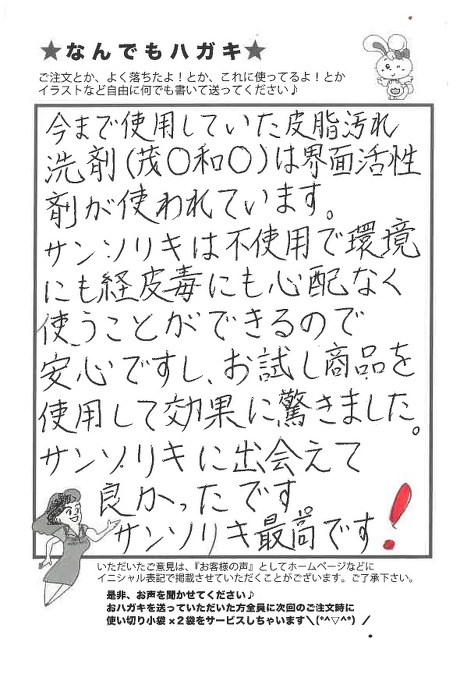 ★なんでもハガキ★
ご注文とか、よく落ちたよ！とか、これに使ってるよ！とか
イラストなど自由に何でも書いて送ってください♪
今まで使用していた皮脂汚れ
洗剤(茂〇和〇)は界面活性
剤が使われています。
サンソリキは不使用で環境
にも経皮毒にも心配なく
使うことができるので
安心ですし、お試し商品を
使用して効果に驚きました。
サンソリキに出会えて
良かったです
サンソリキ最高です!
いただいたご意見は、『お客様の声』としてホームページなどに
イニシャル表記で掲載させていただくことがございます。ご了承下さい。
是非、お声を聞かせてください♪
おハガキを送っていただいた方全員に次回のご注文時に
使い切り小袋×2袋をサービスしちゃいます＼(*^▽^*)／